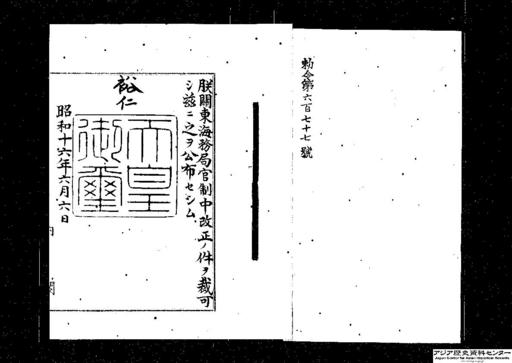 勅令第六百七十七號
朕關東海務局官制中改正ノ件ヲ裁可
シ茲ニ之ヲ公布セシム
裕仁
天皇
御璽
昭和十六年六月六日
閣
アジア歴史資料センター
Japan Center for Asian Historical Records